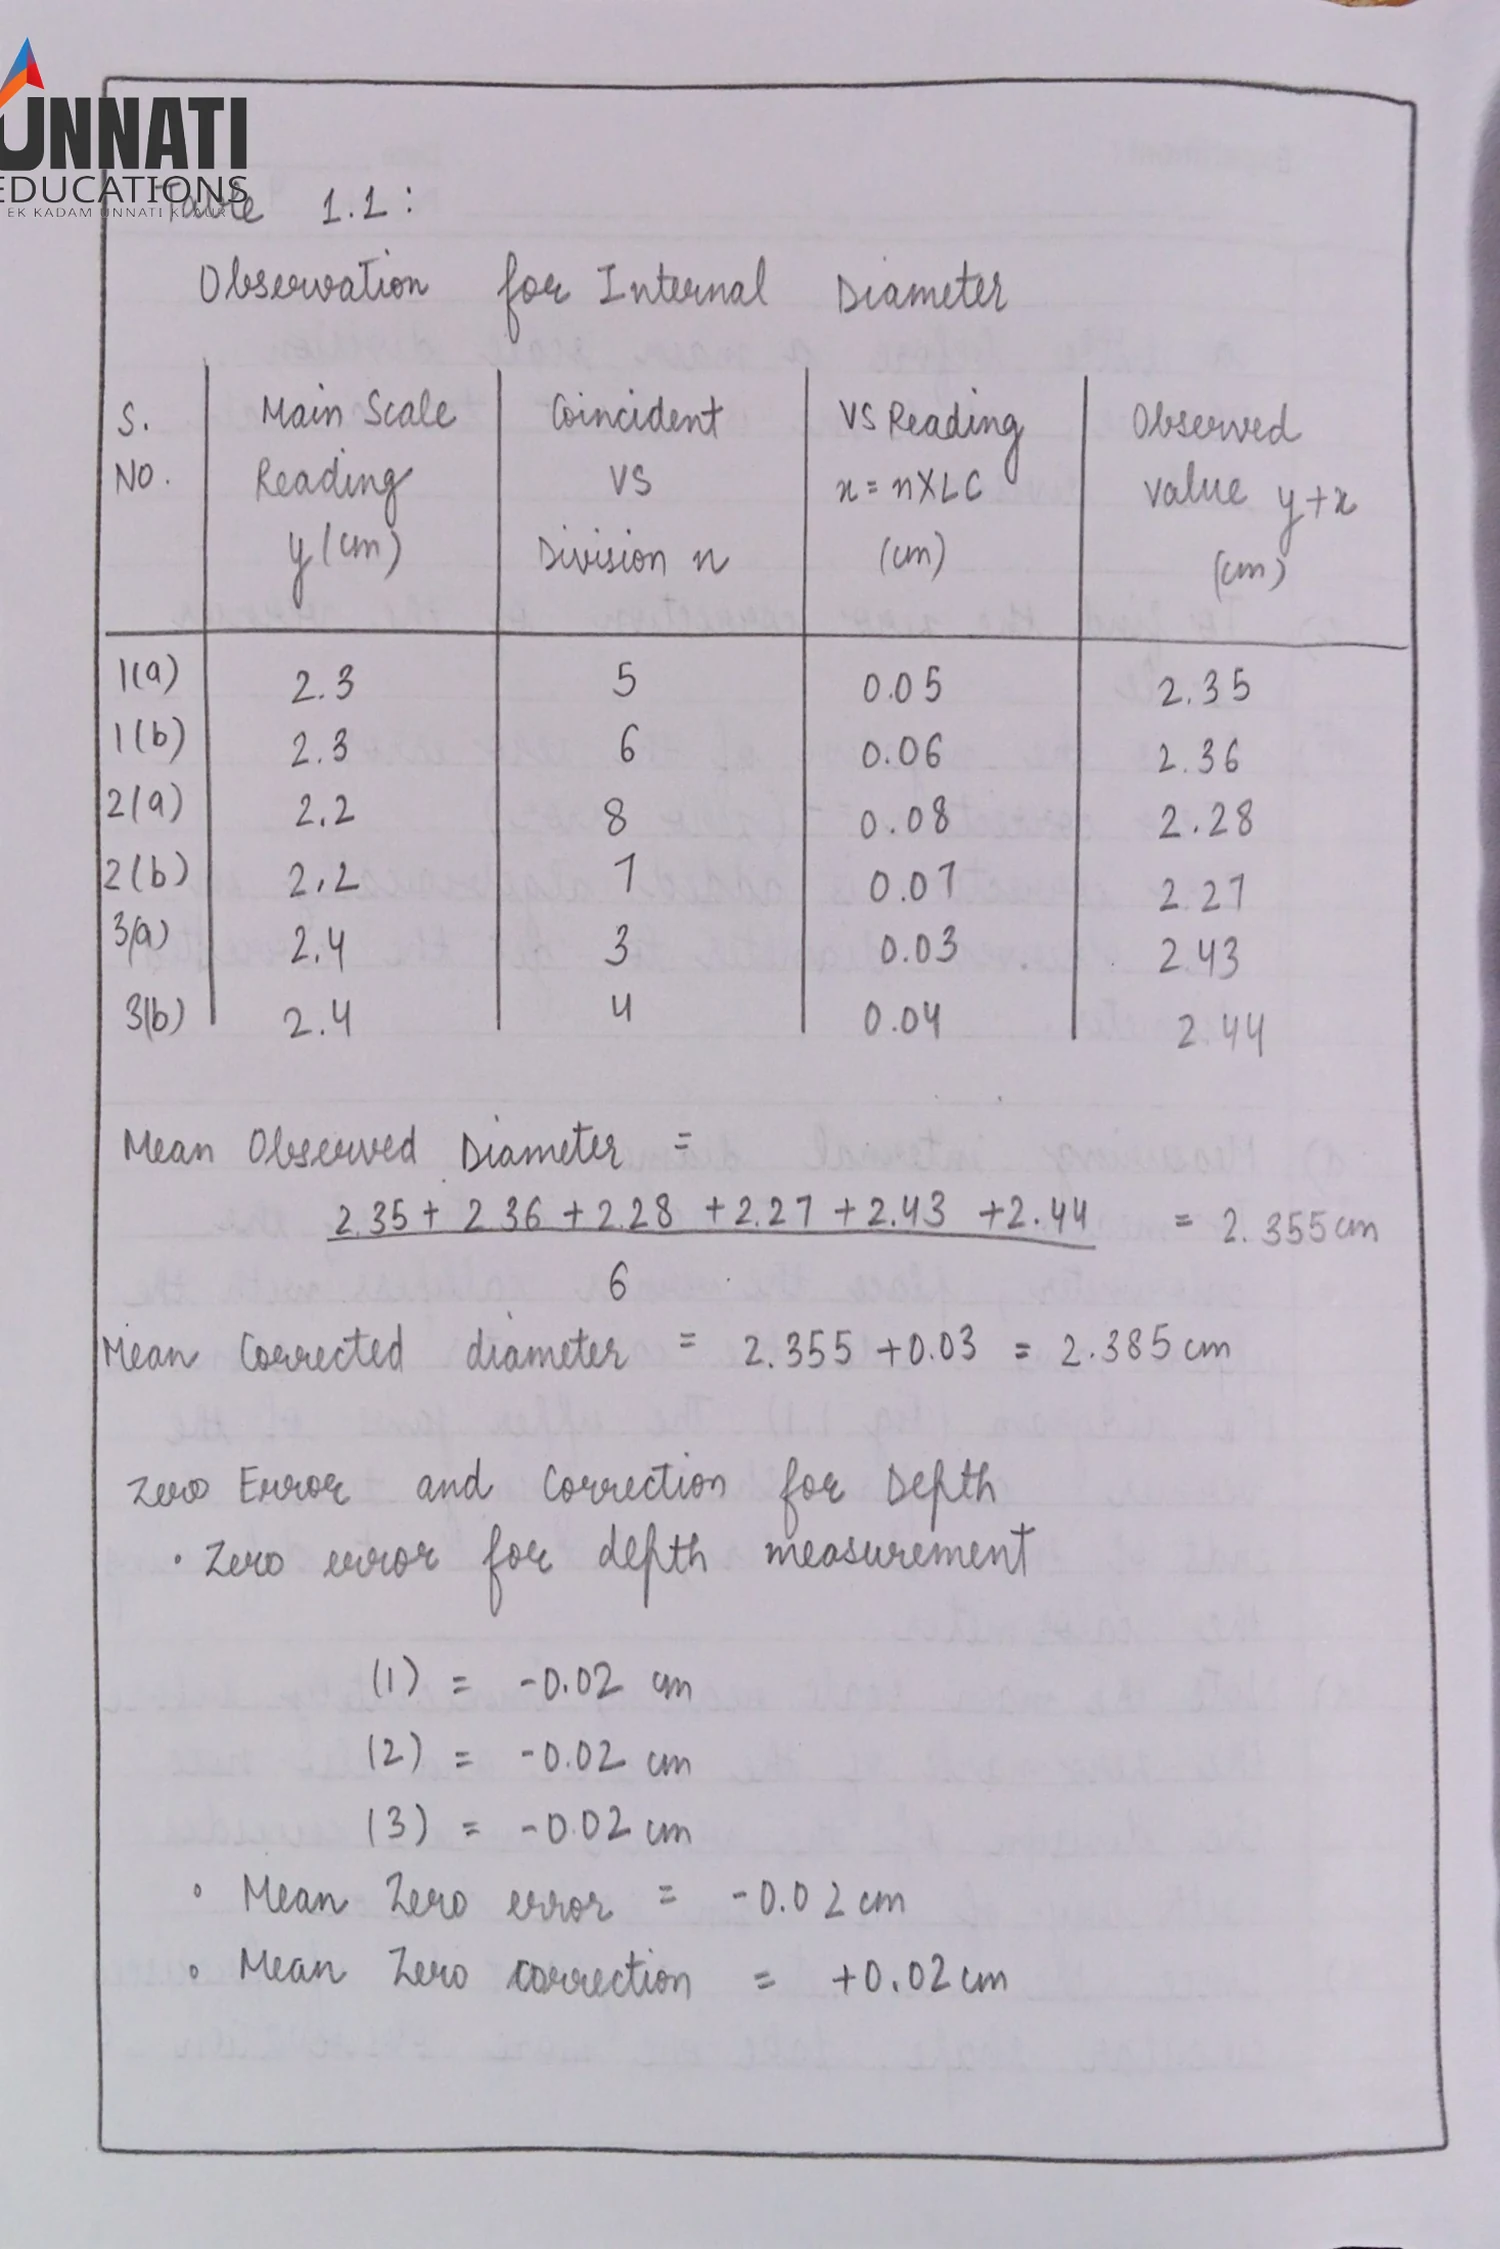 UNNATI
EDUCATIONS
EK KADAM UNNATI KI AUR
Table 1.1:
Observation for Internal Diameter
S. NO. | Main Scale Reading y (cm) | Coincident VS Division n | VS Reading x = n X LC (cm) | Observed value y+x (cm)
1(a) 2.3 5 0.05 2.35
1(b) 2.3 6 0.06 2.36
2(a) 2.2 8 0.08 2.28
2(b) 2.2 7 0.07 2.27
3(a) 2.4 3 0.03 2.43
3(b) 2.4 4 0.04 2.44
Mean Observed Diameter =
2.35 + 2.36 + 2.28 + 2.27 + 2.43 + 2.44 = 2.355 cm
6
Mean Corrected diameter = 2.355 + 0.03 = 2.385 cm
Zero Error and Correction for Depth
• Zero error for depth measurement
(1) = -0.02 cm
(2) = -0.02 cm
(3) = -0.02 cm
• Mean Zero error = -0.02 cm
• Mean Zero correction = +0.02 cm